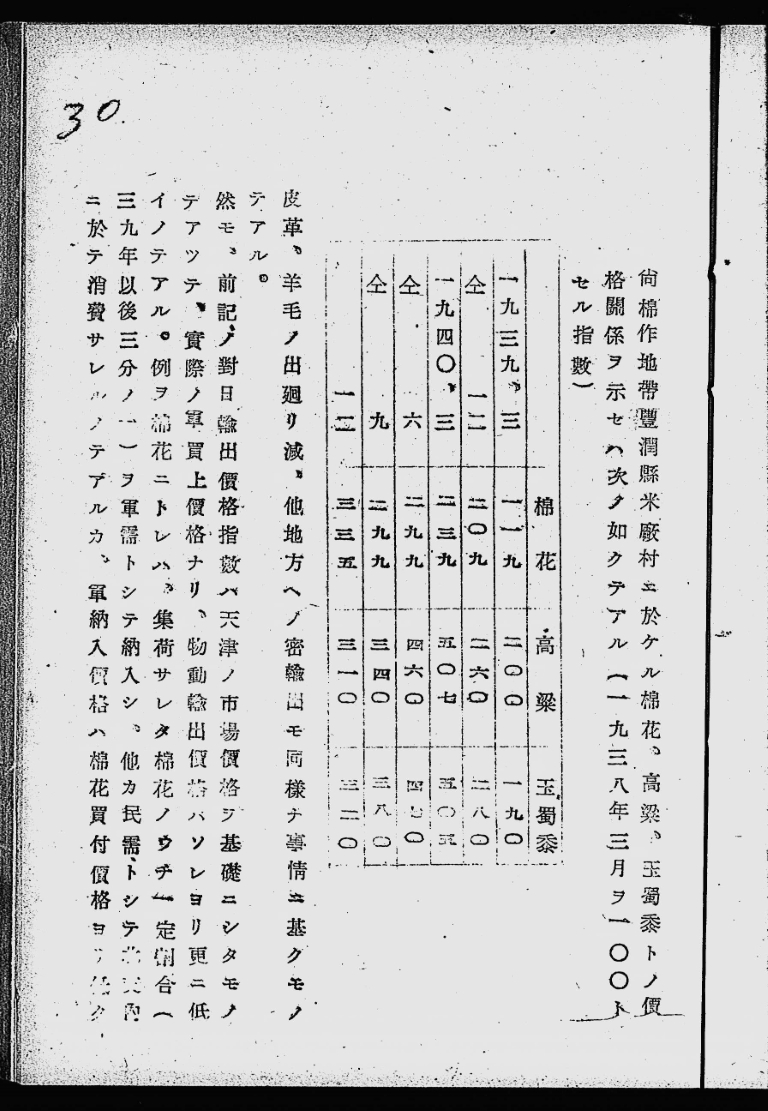 30.
尙棉作地帶豐潤縣米廠村ニ於ケル棉花、高粱、玉蜀黍トノ價
格關係ヲ示セハ次ノ如クテアル(一九三八年三月ヲ一〇〇ト
セル指數)
棉花 高粱 玉蜀黍
一九三九、三 一一九 二〇〇 一九〇
仝 一二 二〇九 二六〇 二八〇
一九四〇、三 二三九 五〇七 五〇五
仝 六 二九九 四六〇 四七〇
仝 九 二九九 三四〇 三八〇
一二 三三五 三一〇 三二〇
皮革、羊毛ノ出廻リ減、他地方ヘノ密輸出モ同樣ナ事情ニ基クモノ
テアル。
然モ、前記ノ對日輸出價格指數ハ天津ノ市場價格ヲ基礎ニシタモノ
テアツテ、實際ノ軍買上價格ナリ、物動輸出價格ハソレヨリ更ニ低
イノテアル。例ヲ棉花ニトレハ、集荷サレタ棉花ノウチ一定割合(
三九年以後三分ノ一)ヲ軍需トシテ納入シ、他カ民需トシテ北支內
ニ於テ消費サレルノテアルカ、軍納入價格ハ棉花買付價格ヨリ低ク